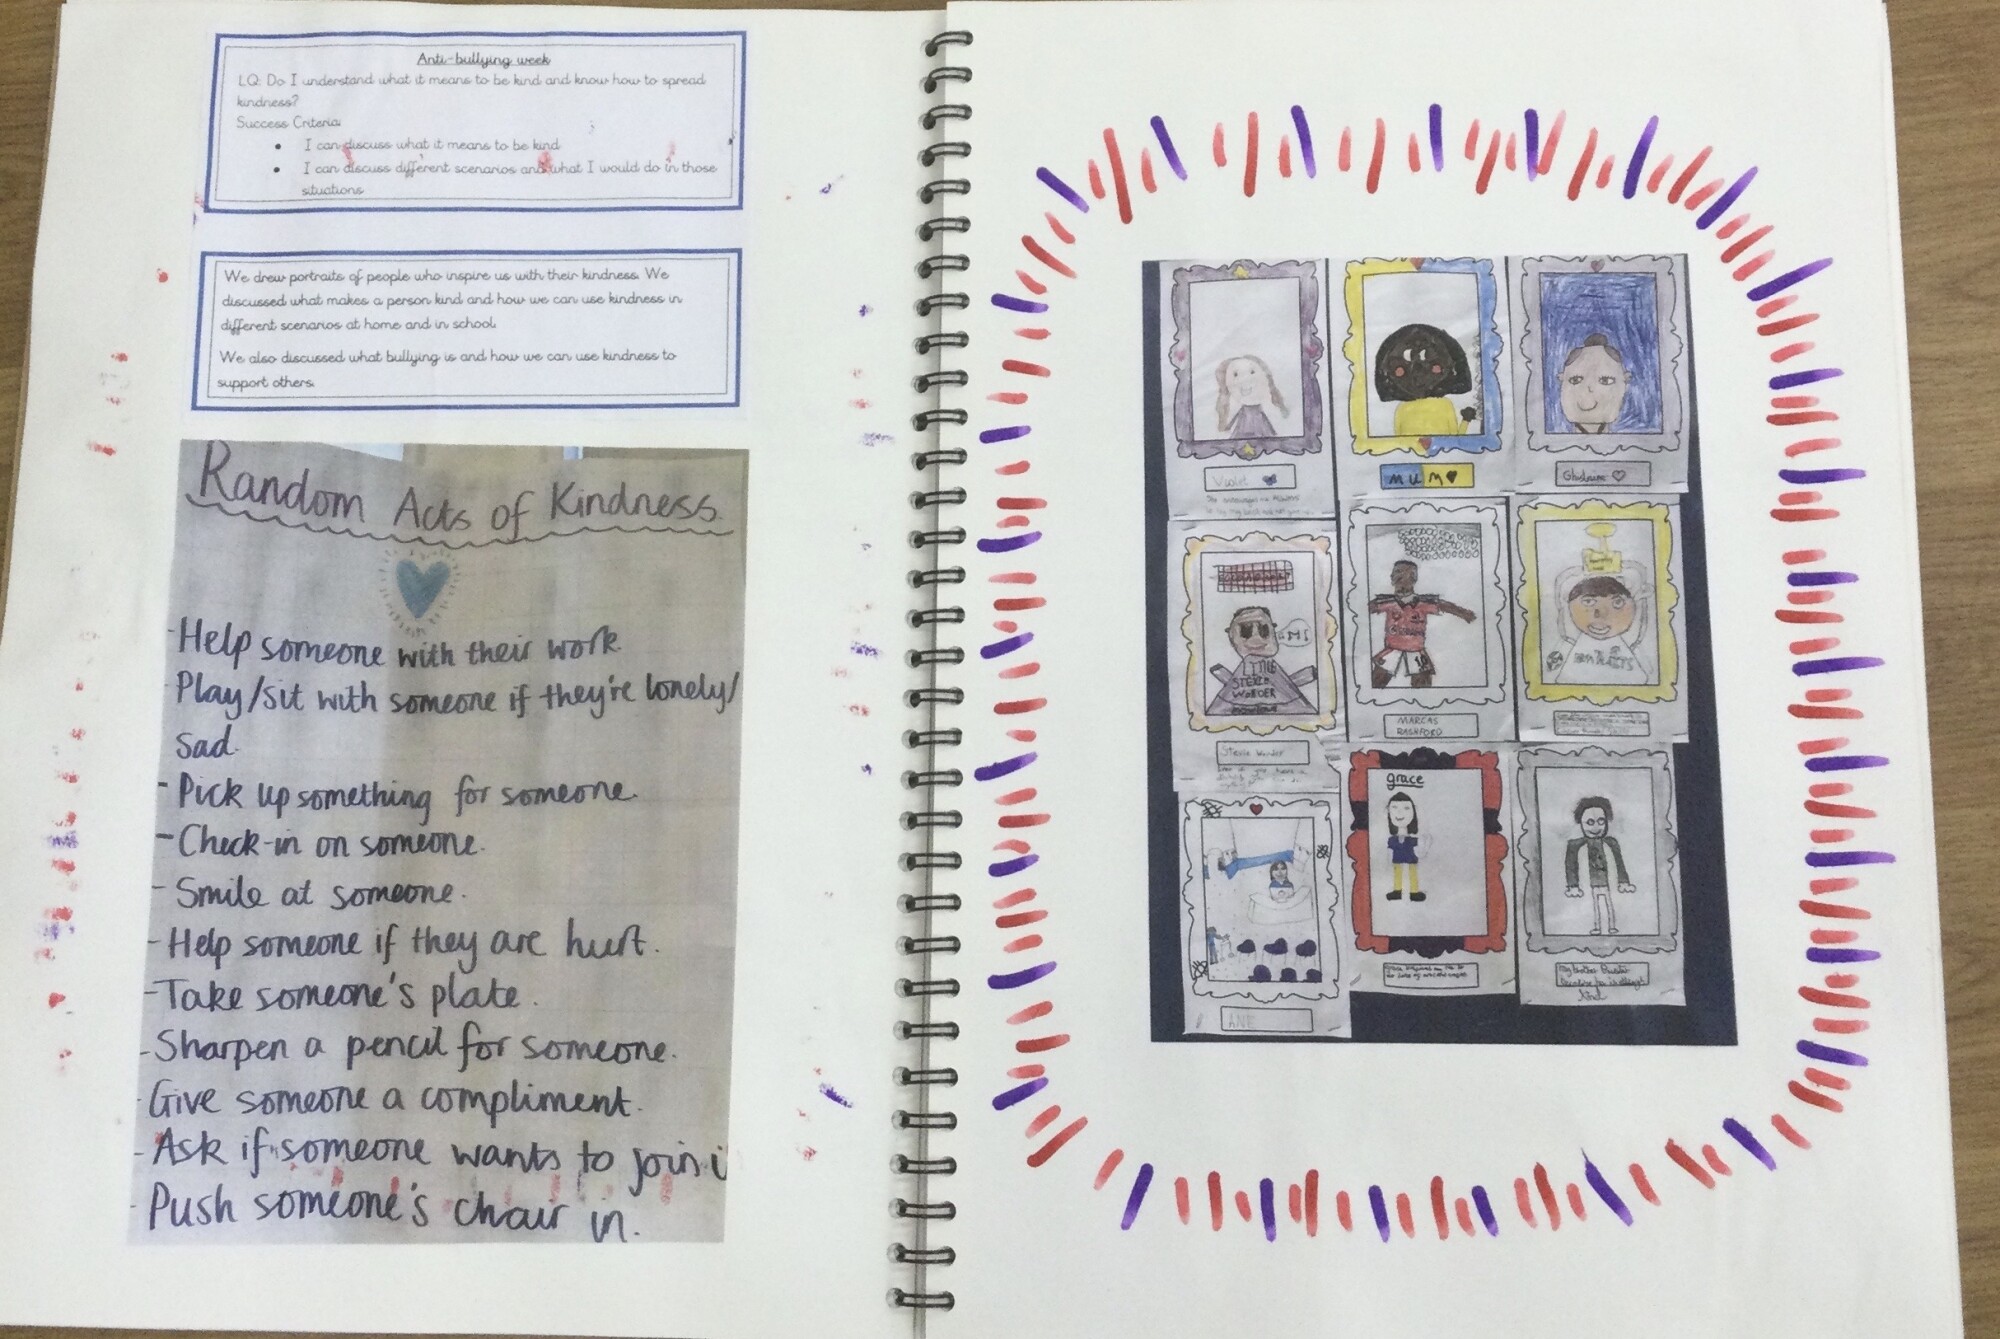 Anti-bullying week
LQ: Do I understand what it means to be kind and know how to spread
kindness?
Success Criteria:
• I can discuss what it means to be kind
• I can discuss different scenarios and what I would do in those
situations
We drew portraits of people who inspire us with their kindness. We
discussed what makes a person kind and how we can use kindness in
different scenarios at home and in school.
We also discussed what bullying is and how we can use kindness to
support others.
Random Acts of Kindness
-Help someone with their work.
-Play/sit with someone if they're lonely/
sad.
-Pick up something for someone.
-Check-in on someone.
-Smile at someone.
-Help someone if they are hurt.
-Take someone's plate.
-Sharpen a pencil for someone.
-Give someone a compliment.
-Ask if someone wants to join i
-Push someone's chair in.
Violet
MUM
Ghislaine
STEVIE
WONDER
Stevie Wonder
MARCAS
RASHFORD
grace
My brother Buster
kind
ANE